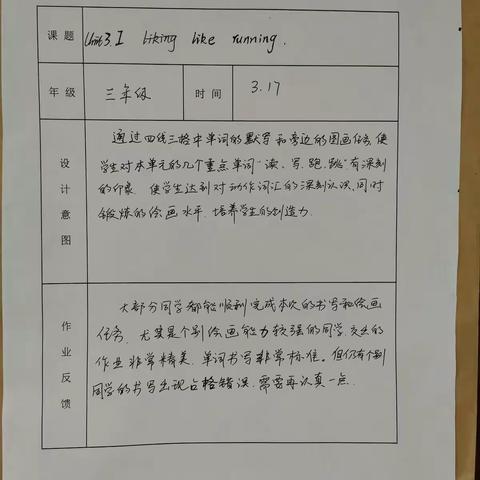 课题 Unit3. I liking like running.
年级 三年级 时间 3.17
设计意图
通过四线三格中单词的默写和旁边的图画任务,使
学生对本单元的几个重点单词“读、写、跑、跳”有深刻
的印象. 使学生达到对动作词汇的深刻认识、同时
锻炼的绘画水平. 培养学生的创造力.
作业反馈
大部分同学都能顺利完成本次的书写和绘画
任务. 尤其是个别绘画能力较强的同学. 交上的
作业非常精美. 单词书写非常标准。但仍有个别
同学的书写出现占格错误. 需要再认真一点.